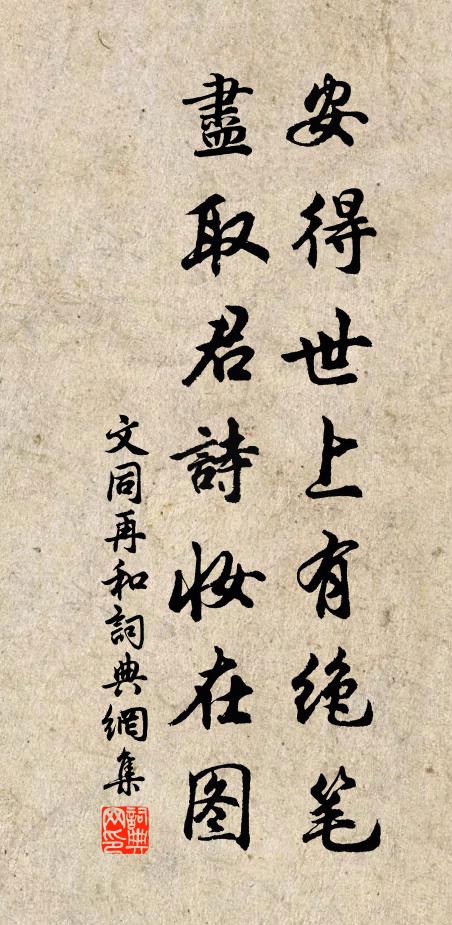 安得世上有绝笔
盡取君詩妆在图
文同再和詞典網集
詞典網印